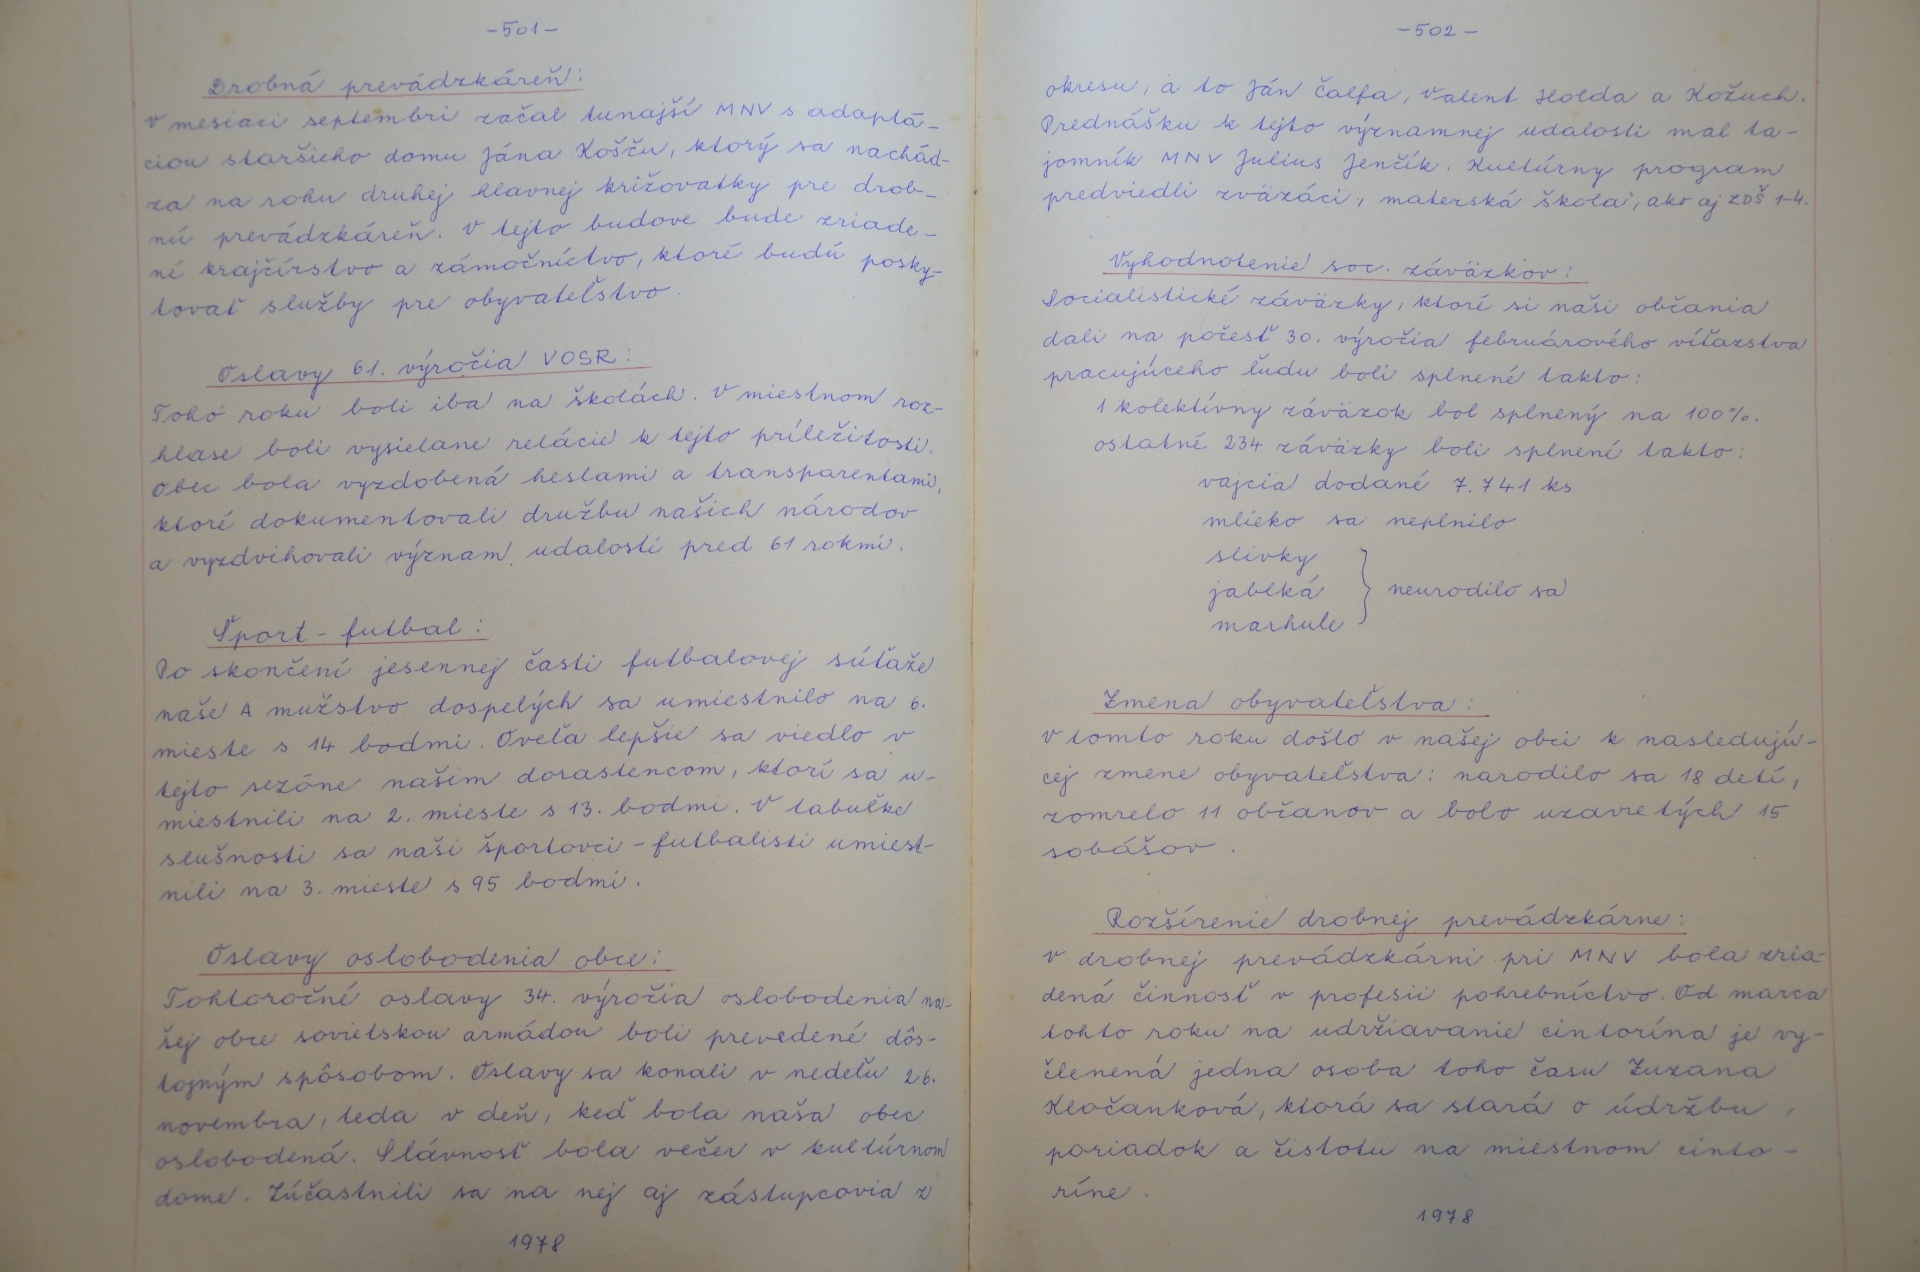 -501-
Drobná prevádzkáreň:
V mesiaci septembri začal tunajší MNV s adaptá-
ciou staršieho domu Jána Košču, ktorý sa nachád-
za na rohu druhej hlavnej križovatky pre drob-
nú prevádzkáreň. V tejto budove bude zriade-
né krajčírstvo a zámočníctvo, ktoré budú posky-
tovať služby pre obyvateľstvo.
Oslavy 61. výročia VOSR:
Toho roku boli iba na školách. V miestnom roz-
hlase boli vysielane relácie k tejto príležitosti.
Obec bola vyzdobená heslami a transparentami,
ktoré dokumentovali družbu našich národov
a vyzdvihovali význam udalosti pred 61 rokmi.
Šport - futbal:
Po skončení jesennej časti futbalovej súťaže
naše A mužstvo dospelých sa umiestnilo na 6.
mieste s 14 bodmi. Oveľa lepšie sa viedlo v
tejto sezóne našim dorastencom, ktorí sa u-
miestnili na 2. mieste s 13. bodmi. V tabuľke
slušnosti sa naši športovci - futbalisti umiest-
nili na 3. mieste s 95 bodmi.
Oslavy oslobodenia obce:
Tohtoročné oslavy 34. výročia oslobodenia na-
šej obce sovietskou armádou boli prevedené dôs-
tojným spôsobom. Oslavy sa konali v nedeľu 26.
novembra, teda v deň, keď bola naša obec
oslobodená. Slávnosť bola večer v kultúrnom
dome. Zúčastnili sa na nej aj zástupcovia z
1978
-502-
okresu, a to Ján Čalfa, Valent Holda a Kožuch.
Prednášku k tejto významnej udalosti mal ta-
jomník MNV Julius Jenčík. Kultúrny program
predviedli zväzáci, materská škola, ako aj ZDŠ 1-4.
Vyhodnotenie soc. záväzkov:
Socialistické záväzky, ktoré si naši občania
dali na počesť 30. výročia februárového víťazstva
pracujúceho ľudu boli splnené takto:
1 kolektívny záväzok bol splnený na 100%.
ostatné 234 záväzky boli splnení takto:
vajcia dodané 7.741 ks
mlieko sa neplnilo
slivky
jablká } neurodilo sa
marhule
Zmena obyvateľstva:
V tomto roku došlo v našej obci k nasledujú-
cej zmene obyvateľstva: narodilo sa 18 detí,
zomrelo 11 občanov a bolo uzavretých 15
sobášov.
Rozšírenie drobnej prevádzkárne:
V drobnej prevádzkárni pri MNV bola zria-
dená činnosť v profesii pohrebníctvo. Od marca
tohto roku na udržiavanie cintorína je vy-
členená jedna osoba toho času Zuzana
Kločanková, ktorá sa stará o údržbu,
poriadok a čistotu na miestnom cinto-
ríne.
1978